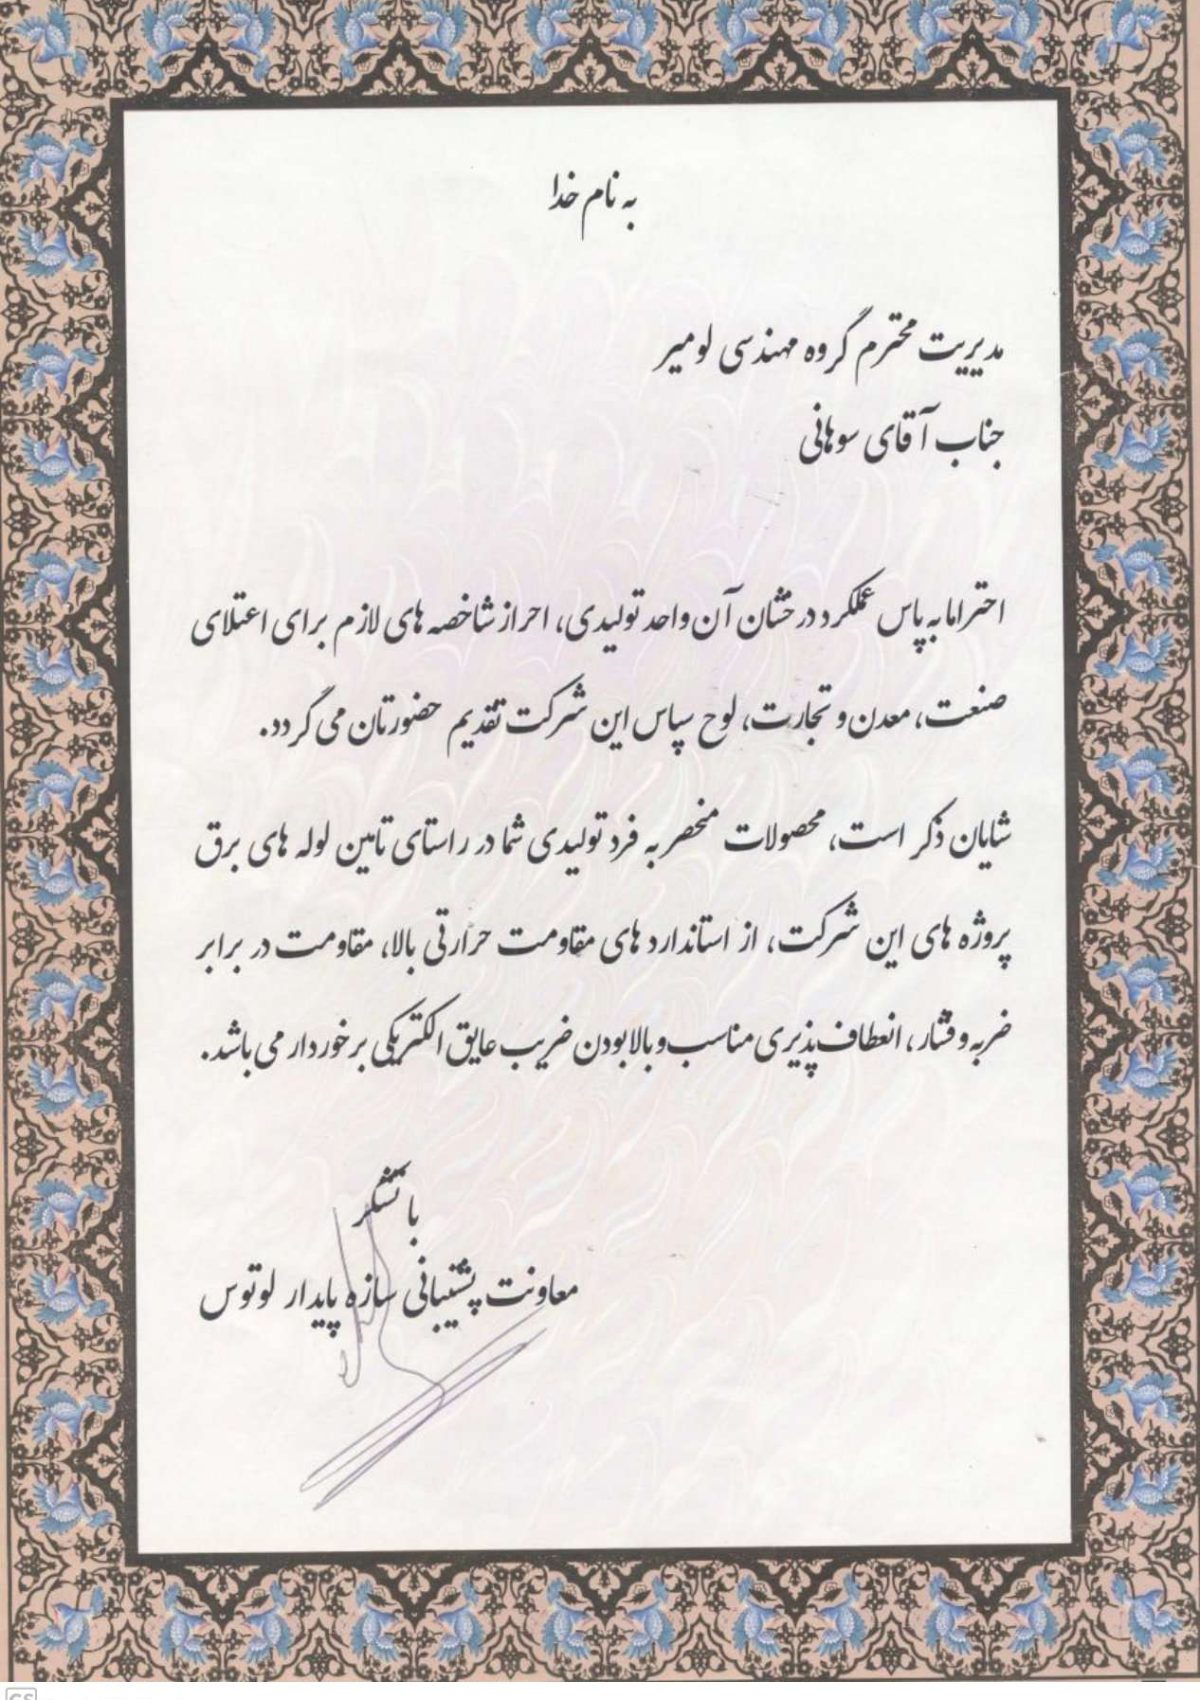 به نام خدا
مدیریت محترم گروه مهندسی لومیر
جناب آقای سوهانی
احتراما به پاس عملکرد درخشان آن واحد تولیدی، احراز شاخصه های لازم برای اعتلای
صنعت، معدن و تجارت، لوح سپاس این شرکت تقدیم حضورتان می گردد.
شایان ذکر است، محصولات منحصر به فرد تولیدی شما در راستای تامین لوله های برق
پروژه های این شرکت، از استاندارد های مقاومت حرارتی بالا، مقاومت در برابر
ضربه و فشار، انعطاف پذیری مناسب و بالا بودن ضریب عایق الکتریکی برخوردار می باشد.
با تشکر
معاونت پشتیبانی سازه پایدار لوتوس
CS